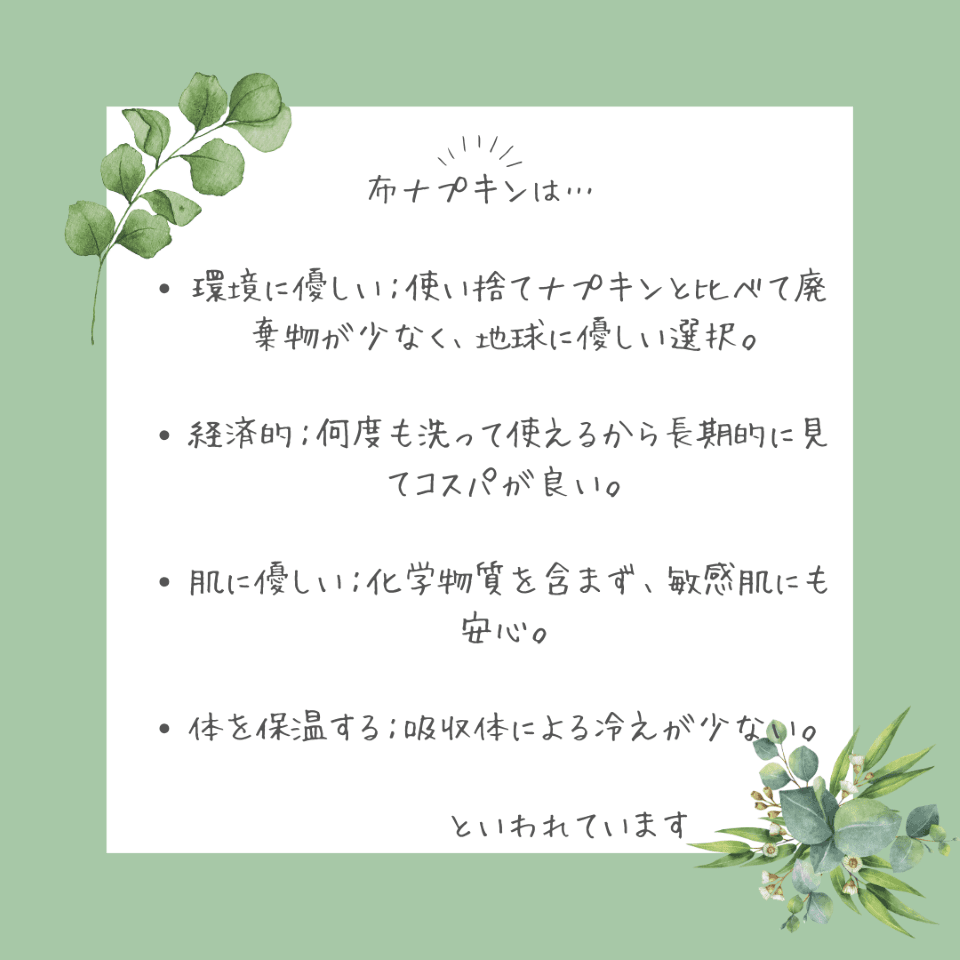 布ナプキンは…
• 環境に優しい;使い捨てナプキンと比べて廃
棄物が少なく、地球に優しい選択。
• 経済的;何度も洗って使えるから長期的に見
てコスパが良い。
• 肌に優しい;化学物質を含まず、敏感肌にも
安心。
• 体を保温する;吸収体による冷えが少ない。
といわれています